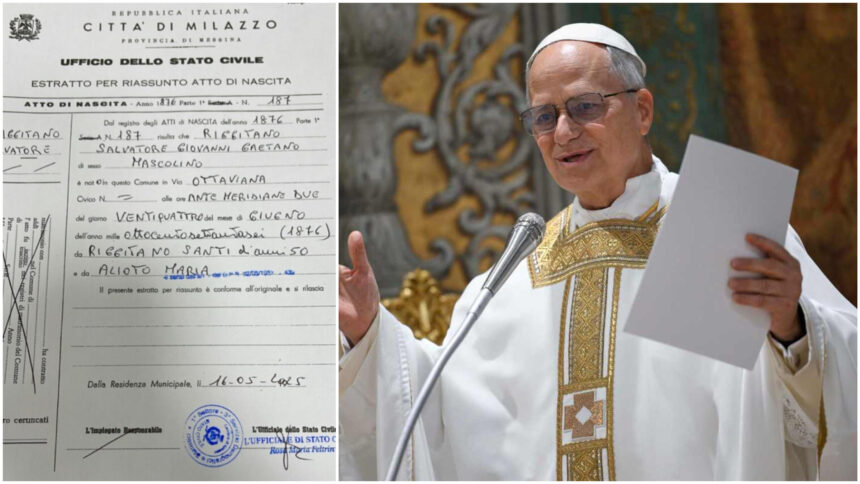 REPUBBLICA ITALIANA
CITTÀ DI MILAZZO
PROVINCIA DI MESSINA
UFFICIO DELLO STATO CIVILE
ESTRATTO PER RIASSUNTO ATTO DI NASCITA
ATTO DI NASCITA - Anno 1876 Parte 1ª N. 187
Dal registro degli ATTI di NASCITA dell'anno 1876 Parte 1ª
N 187 risulta che RIGGITANO
SALVATORE GIOVANNI GAETANO
di sesso MASCOLINO
è nato in questo Comune in Via OTTAVIANA
Civico N = alle ore ANTE MERIDIANE DUE
del giorno VENTIQUATTRO del mese di GIUGNO
dell'anno mille ottocentosettantasei (1876)
da RIGGITANO SANTI d'anni 50
e da ALIOTO MARIA
Il presente estratto per riassunto è conforme all'originale e si rilascia
Dalla Residenza Municipale, lì 16-05-2025
L'Impiegato Responsabile
L'Ufficiale dello Stato Civile
L'UFFICIALE DI STATO C
Rosa Maria Feltrin
RIGGITANO
VATORE
ha contratto
nel Comune di
Anno
ro certificati